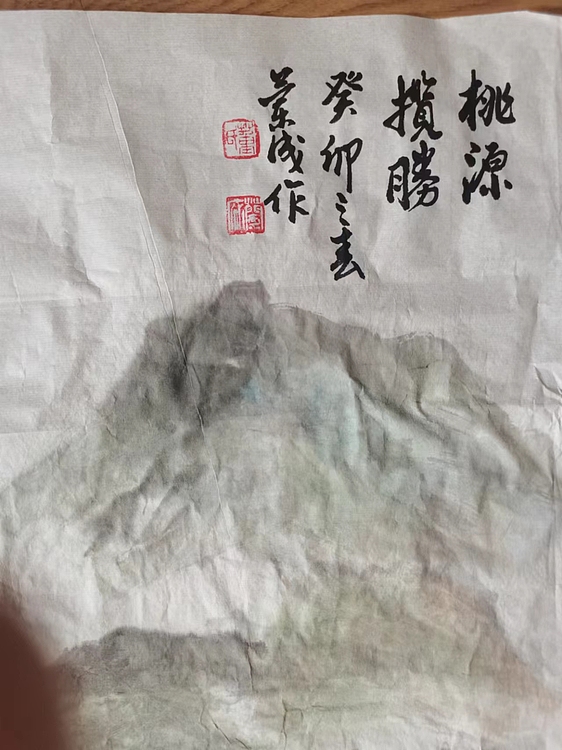 桃源
攬勝
癸卯之春
荣成作